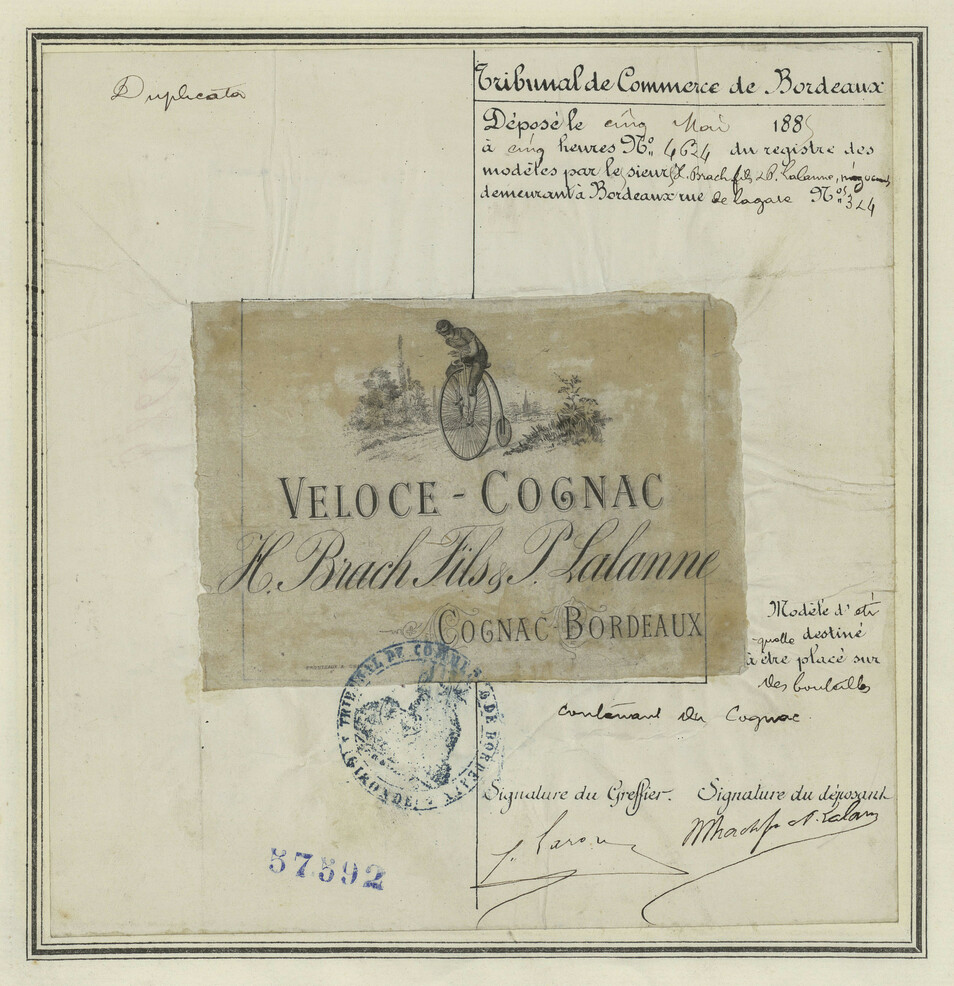 Duplicata
Tribunal de Commerce de Bordeaux
Déposé le cinq Mai 1885
à cinq heures N° 4634 du registre des
modèles par le sieurs H. Brach fils & P. Lalanne, négociants
demeurant à Bordeaux rue de lagare N°s 324
VELOCE - COGNAC
H. Brach Fils & P. Lalanne
COGNAC - BORDEAUX
Modèle d'éti
quette destiné
à être placé sur
des bouteilles
contenant du Cognac.
TRIBUNAL DE COMMERCE DE BORDEAUX
(GIRONDE)
Signature du Greffier. Signature du déposant
57592